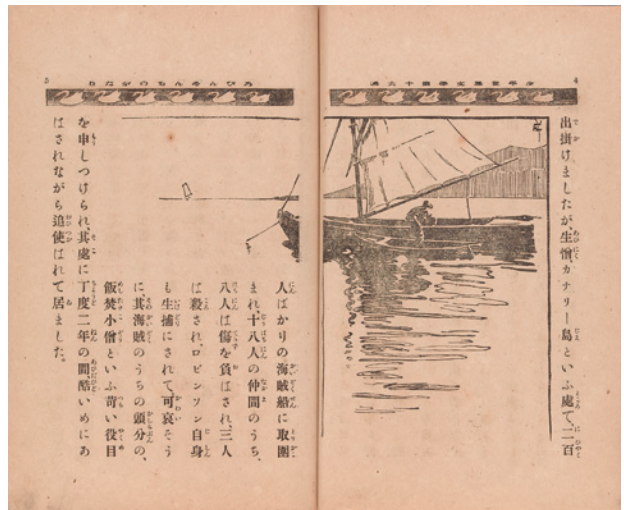 出掛けましたが、生憎、カナリー島といふ處で、二百
人ばかりの海賊船に取圍
まれ、十八人の仲間のうち、
八人は傷を負はされ、三人
は殺され、ロビンソン自身
も生捕にされて、可哀そう
に、其海賊のうちの頭分の、
飯焚小僧といふ苛い役目
を申しつけられ、其處に丁度二年の間、酷いめにあ
はされながら追使ばれて居ました。
4
5